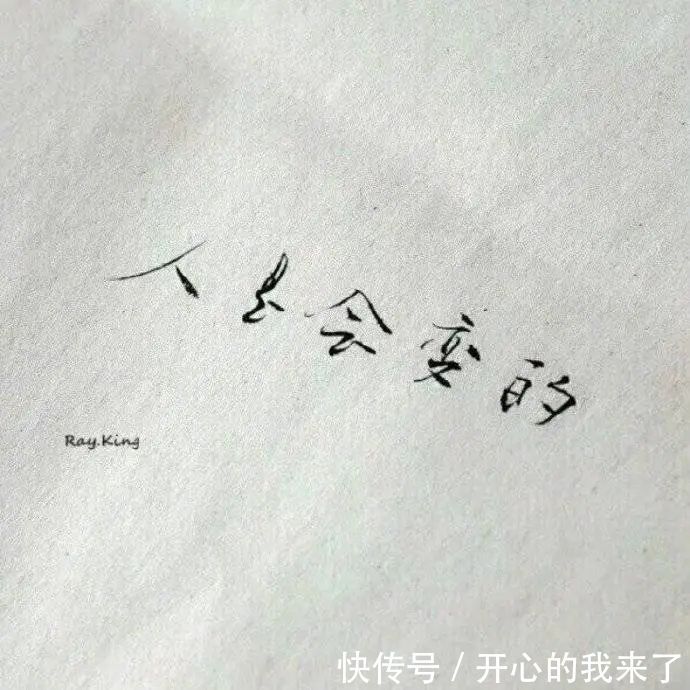 人是会变的
Ray.King
快传号 / 开心的我来了